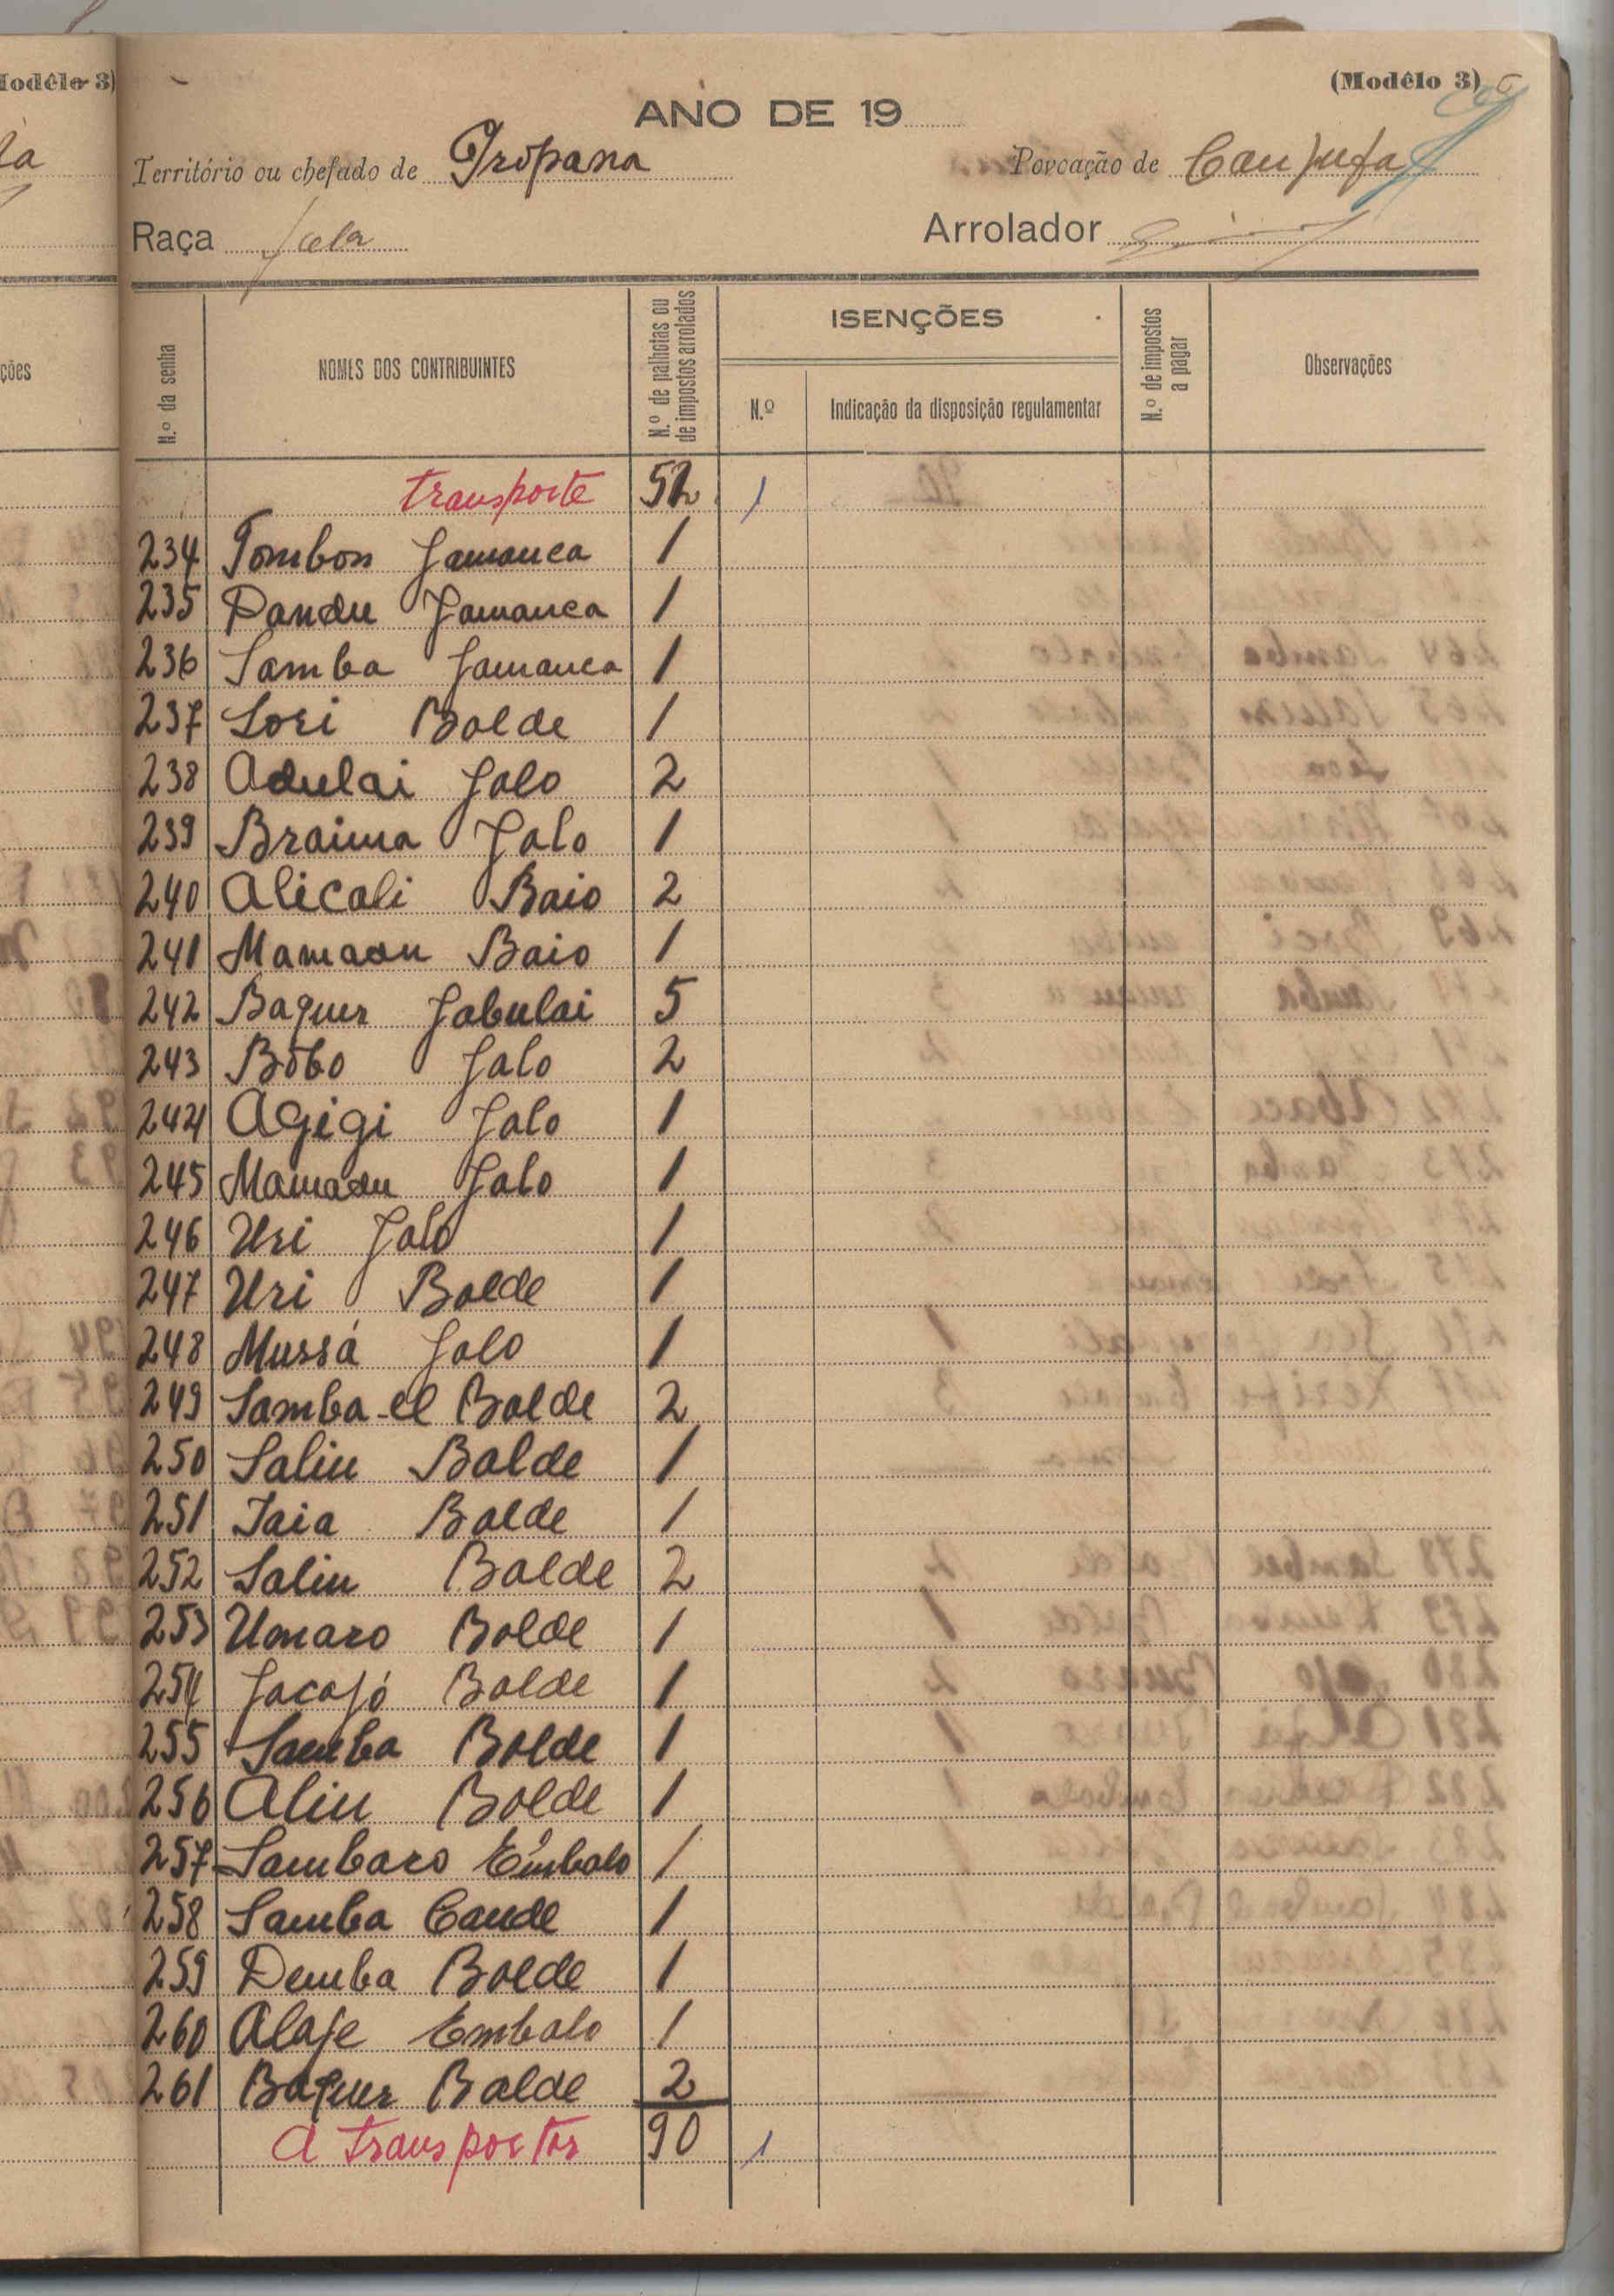 (Modêlo 3)
ANO DE 19
Território ou chefado de Propana
Povoação de Canjufa
Raça Fula
Arrolador
N.º da senha
NOMES DOS CONTRIBUINTES
N.º de palhotas ou de impostos arrolados
ISENÇÕES
N.º
Indicação da disposição regulamentar
N.º de impostos a pagar
Observações
transporte 52 1
234 Tombon Jamanca 1
235 Dandu Jamanca 1
236 Samba Jamanca 1
237 Sori Balde 1
238 Adulai Jalo 2
239 Braima Jalo 1
240 Alicali Baio 2
241 Mamadu Baio 1
242 Baquer Jabulai 5
243 Bobo Jalo 2
244 Agigi Jalo 1
245 Mamadu Jalo 1
246 Uri Jalo 1
247 Uri Balde 1
248 Mussá Jalo 1
249 Samba-el Balde 2
250 Saliu Balde 1
251 Iaia Balde 1
252 Saliu Balde 2
253 Umaro Balde 1
254 Jacajó Balde 1
255 Samba Balde 1
256 Aliu Balde 1
257 Sambaro Embalo 1
258 Samba Cande 1
259 Demba Balde 1
260 Alaje Embalo 1
261 Baquer Balde 2
A transportar 90 1